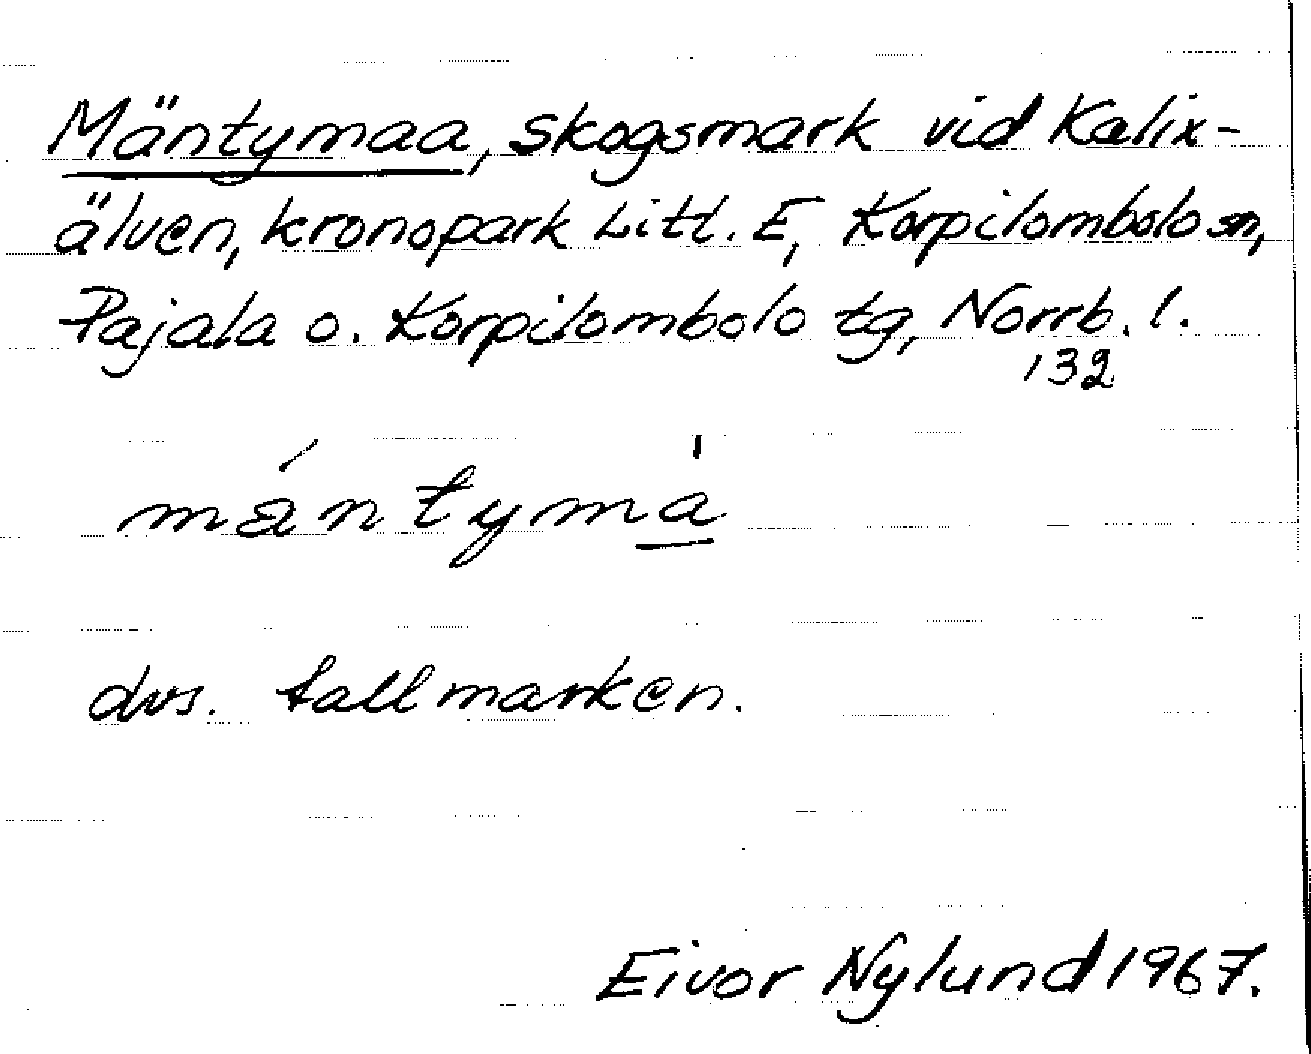 Mäntymaa, skogsmark vid Kalix-
älven, kronopark Litt. E, Korpilombolo sn,
Pajala o. Korpilombolo tg, Norrb. l.
132
mántyma̲̍
dvs. tallmarken.
Eivor Nylund 1967.